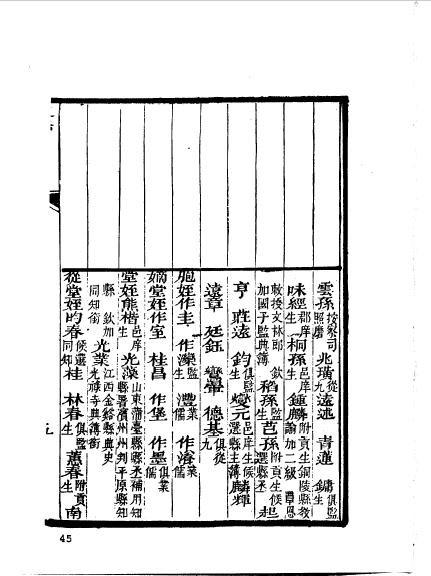 雲孫按察司照磨 兆璜從九 遠逑 青蓮 鏞俱監生
味經郡庠生 桐孫邑庠生 鍾麟附貢生銅陵縣教諭加二級 覃恩
敕授文林郎 欽加國子監典簿 稻孫監生 芑孫附貢生候選縣丞 起
亨 莊遠 鈞俱監生 燮元邑庠生候選縣主簿 麟輝
遠章 廷鈺 鸞翬 德基俱從九
胞姪作圭 作濼監生 作灃業儒 作濬業儒
嫡堂姪作室 桂昌 作堡 作墨俱業儒
堂姪熊楷邑庠生 光藻山東蒲臺縣縣丞補用知縣署濱州州判平原縣知
縣 欽加同知銜 光業江西金谿縣典史光祿寺典簿銜
從堂姪昀春候選同知 桂 林春俱監生 蕙春附貢生 南
五
45